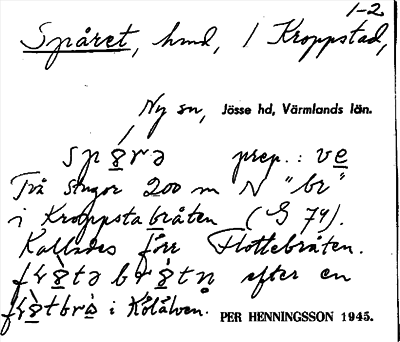 1-2
Spåret, hmd, / Kroppstad,
Ny sn, Jösse hd, Värmlands län.
prep.: ve
Två stugor 200 m N "br"
i Kroppstabråten (G 74).
Kallades förr Flottebråten.
efter en
i Kölälven. PER HENNINGSSON 1945.